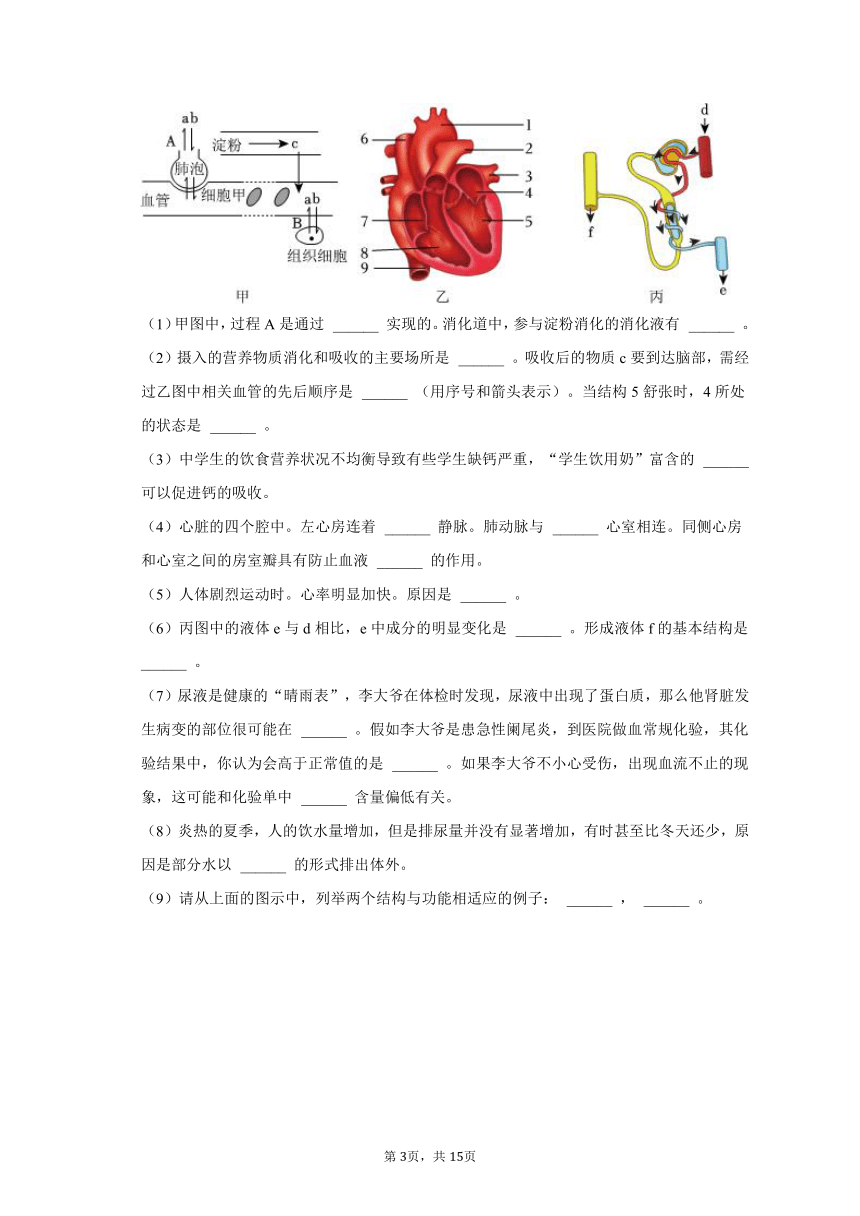 ab
A
淀粉
c
肺泡
血管
细胞甲
ab
B
组织细胞
甲
6
1
2
3
4
7
5
8
9
乙
d
f
e
丙
（1）甲图中，过程A是通过 ______ 实现的。消化道中，参与淀粉消化的消化液有 ______ 。
（2）摄入的营养物质消化和吸收的主要场所是 ______ 。吸收后的物质c要到达脑部，需经
过乙图中相关血管的先后顺序是 ______ （用序号和箭头表示）。当结构5舒张时，4所处
的状态是 ______ 。
（3）中学生的饮食营养状况不均衡导致有些学生缺钙严重，“学生饮用奶”富含的 ______
可以促进钙的吸收。
（4）心脏的四个腔中。左心房连着 ______ 静脉。肺动脉与 ______ 心室相连。同侧心房
和心室之间的房室瓣具有防止血液 ______ 的作用。
（5）人体剧烈运动时。心率明显加快。原因是 ______ 。
（6）丙图中的液体e与d相比，e中成分的明显变化是 ______ 。形成液体f的基本结构是
______ 。
（7）尿液是健康的“晴雨表”，李大爷在体检时发现，尿液中出现了蛋白质，那么他肾脏发
生病变的部位很可能在 ______ 。假如李大爷是患急性阑尾炎，到医院做血常规化验，其化
验结果中，你认为会高于正常值的是 ______ 。如果李大爷不小心受伤，出现血流不止的现
象，这可能和化验单中 ______ 含量偏低有关。
（8）炎热的夏季，人的饮水量增加，但是排尿量并没有显著增加，有时甚至比冬天还少，原
因是部分水以 ______ 的形式排出体外。
（9）请从上面的图示中，列举两个结构与功能相适应的例子： ______ ， ______ 。
第3页，共15页